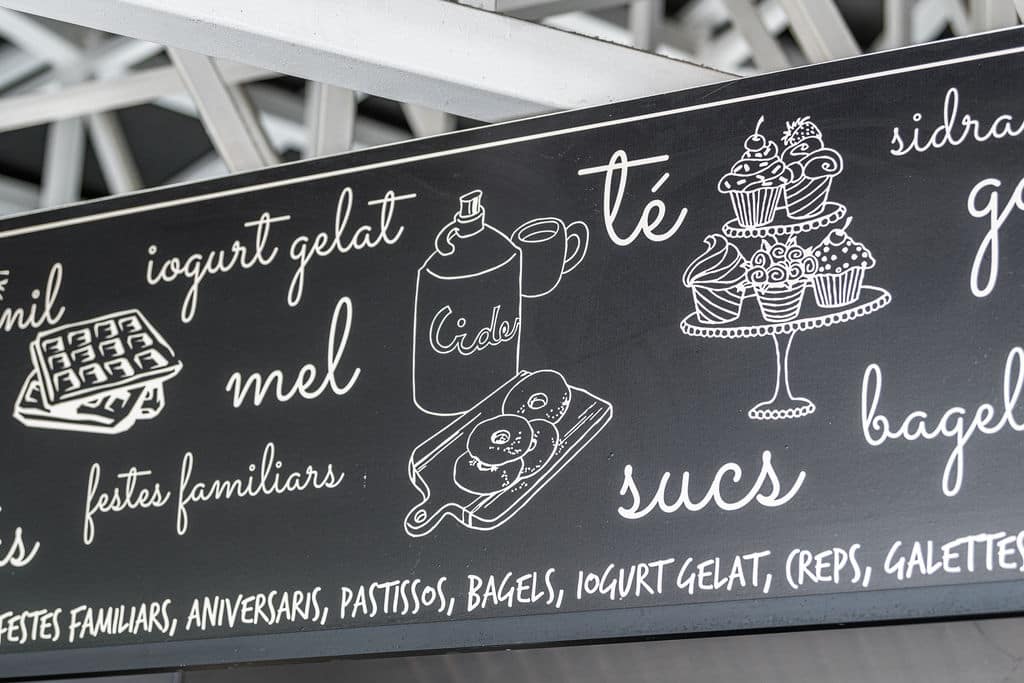 té
sidra
iogurt gelat
mel
Cider
bagel
sucs
festes familiars
FESTES FAMILIARS, ANIVERSARIS, PASTISSOS, BAGELS, IOGURT GELAT, CREPS, GALETTES